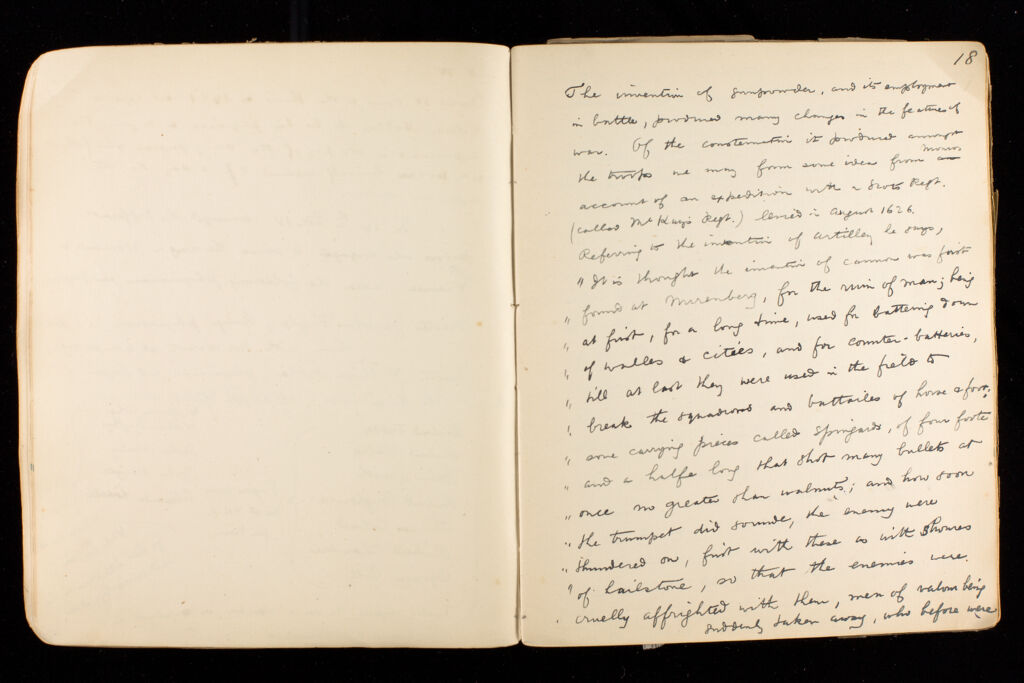 18
The invention of gunpowder, and its employment
in battle, produced many changes in the features of
war. Of the consternation it produced amongst
the troops we may form some idea from Monros
account of an expedition with a Scots Regt.
(called McKay's Regt.) levied in August 1626.
Referring to the invention of artillery he says,
"It is thought the invention of cannon was first
" found at Nurenberg, for the ruin of man; being
" at first, for a long time, used for battering down
" of walles & cities, and for counter-batteries,
" till at last they were used in the field to
" break the squadrons and battailes of horse & foot;
" some carrying pieces called Spingards, of four foote
" and a halfe long that shot many bullets at
" once no greater than walnuts; and how soon
" the trumpet did sounde, the enemy were
" thundered on, first with these as with showres
" of hailstone, so that the enemies were
" cruelly affrighted with them, men of valour being
suddenly taken away, who before were